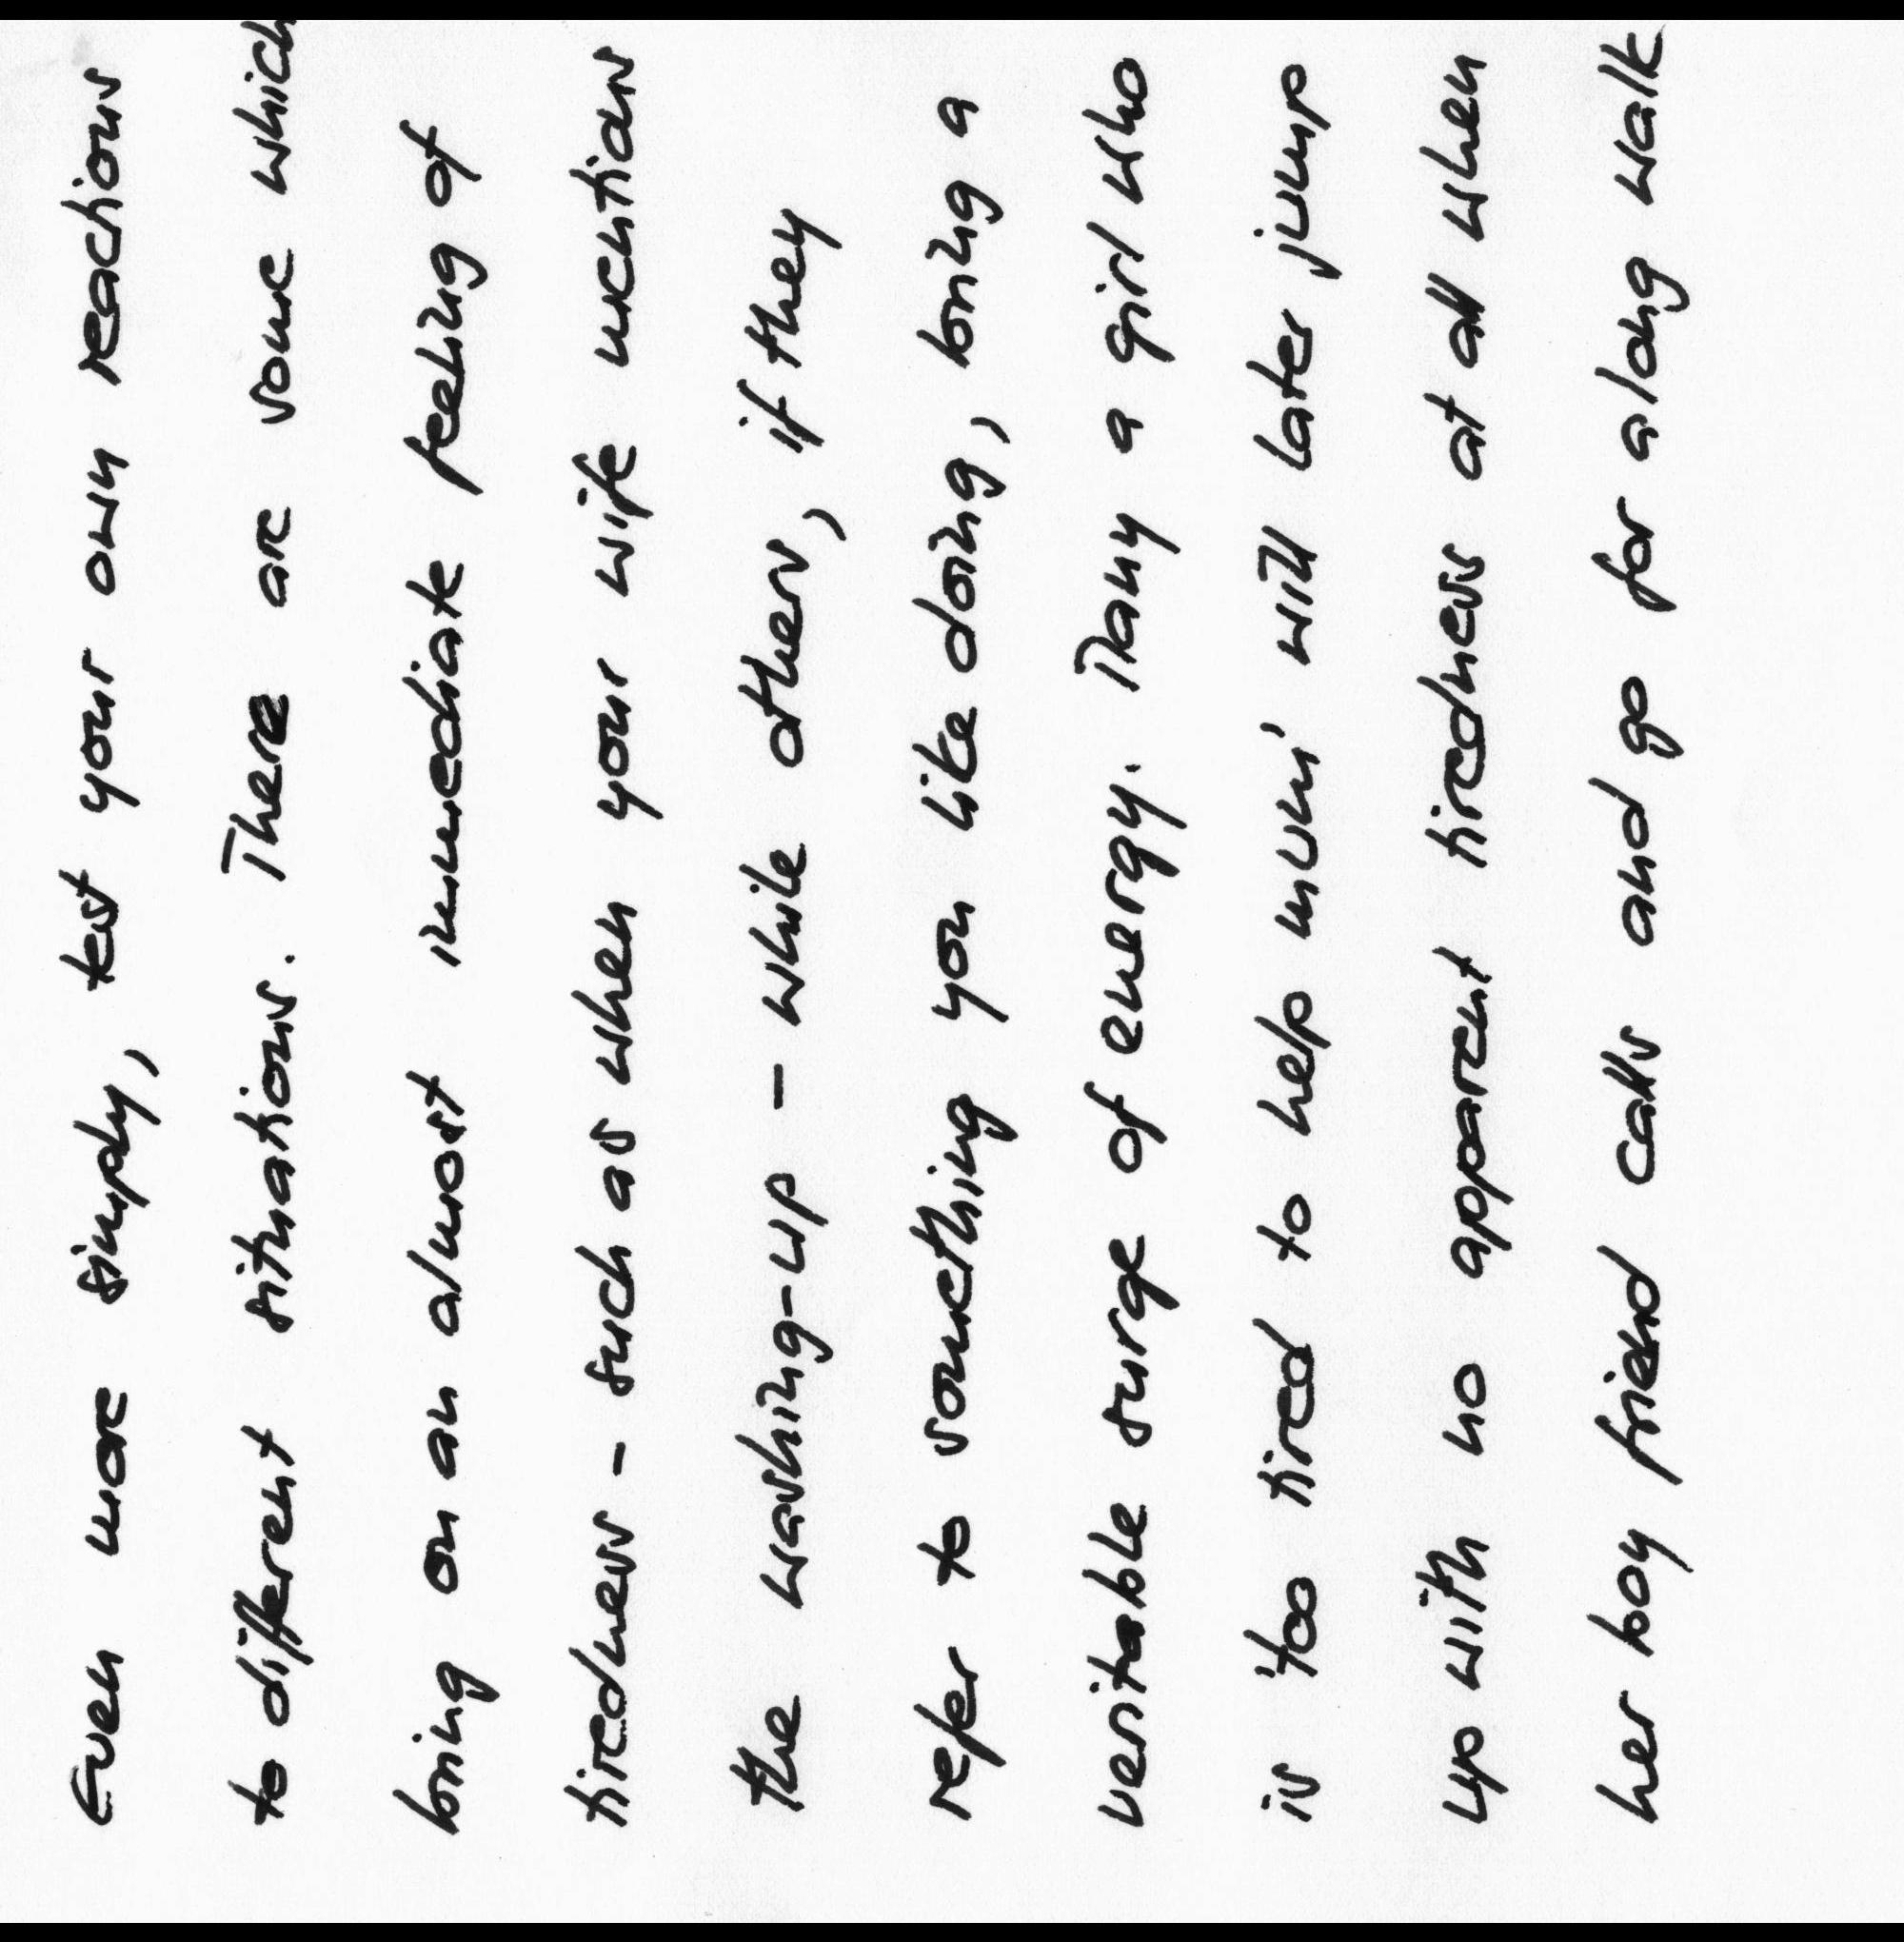 Even more simply, test your own reactions
to different situations. There are some which
bring on an almost immediate feeling of
tiredness - such as when your wife mentions
the washing-up - while others, if they
refer to something you like doing, bring a
veritable surge of energy. Many a girl who
is 'too tired to help mum' will later jump
up with no apparent tiredness at all when
her boy friend calls and go for a long walk